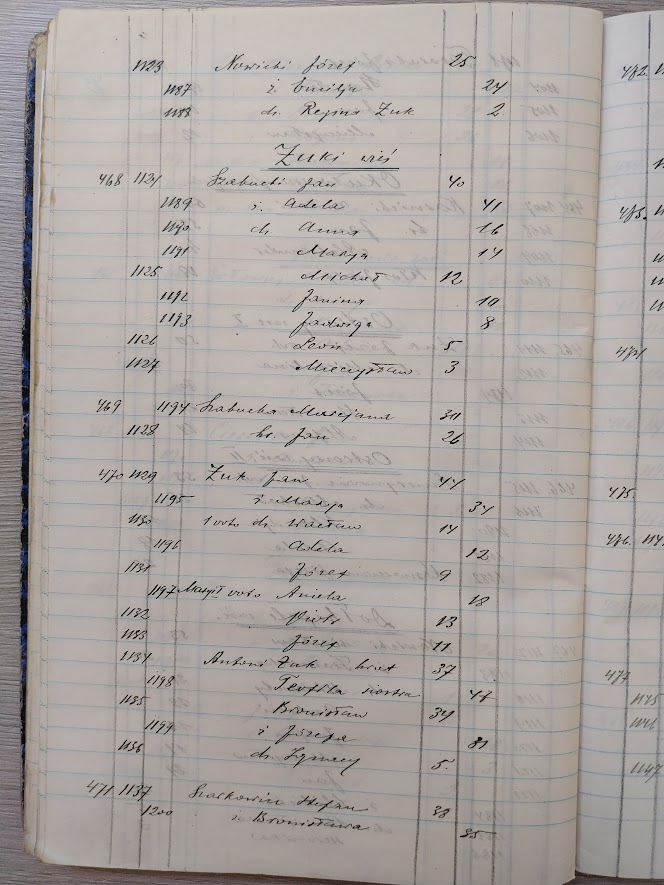 1123 Nowicki Józef 25
1187 ż. Emilja 24
1188 dz. Regina Żuk 2
Żuki wieś
468 1124 Szabucki Jan 40
1189 ż. Adela 41
1190 dz. Anna 16
1191 Marja 14
1125 Michał 12
1192 Janina 10
1193 Jadwiga 8
1126 Leon 5
1127 Mieczysław 3
469 1194 Szabucka Marcjana
1128 br. Jan 26
470 1129 Żuk Jan 44
1195 ż. Marja 34
1130 I voto dz. Wacław 14
1196 Adela 12
1131 Józef 9
1197 voto Aniela 18
1132 Piotr 13
1133 Józef 11
1134 Antoni Żuk brat 37
1198 Teofila siostra 47
1135 Bronisław 34
1199 ż. Józefa 31
1136 dz. Ignacy 5
471 1137 Stefan 38
1200 ż. Bronisława 35
482
485
475
476
477
1145
1147